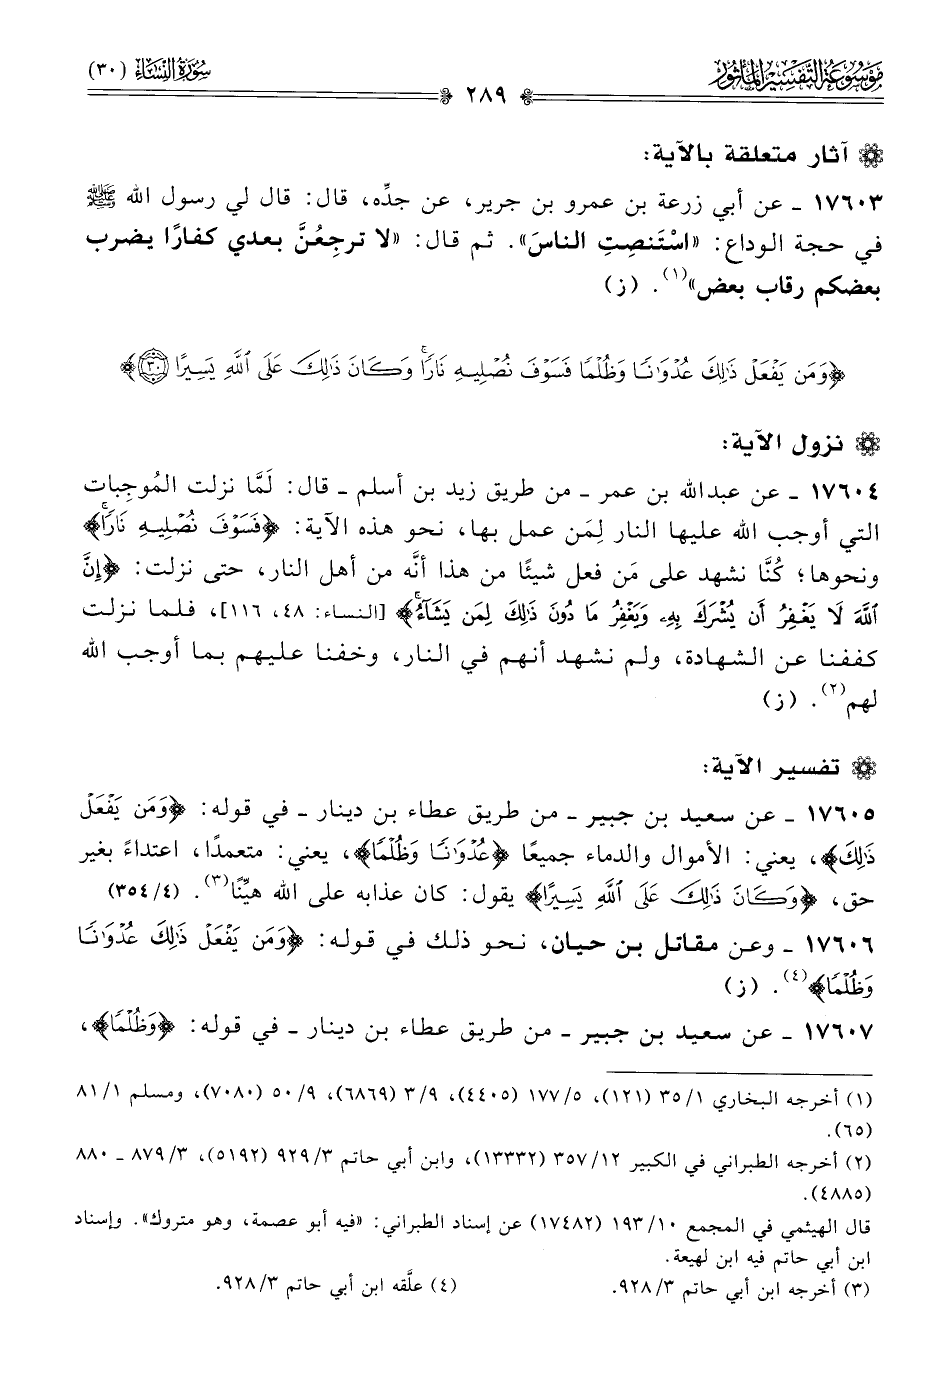 مَوْسُوعَةُ التَّفْسِيرِ المَأْثُورِ
سُورَةُ النِّسَاء (٣٠)
٢٨٩
آثار متعلقة بالآية:
١٧٦٠٣ ـ عن أبي زرعة بن عمرو بن جرير، عن جدِّه، قال: قال لي رسول الله ﷺ
في حجة الوداع: «اسْتَنصِتِ الناسَ». ثم قال: «لا ترجِعُنَّ بعدي كفارًا يضرب
بعضكم رقاب بعض»(١). (ز)
﴿وَمَن يَفْعَلْ ذَٰلِكَ عُدْوَٰنًا وَظُلْمًا فَسَوْفَ نُصْلِيهِ نَارًاۚ وَكَانَ ذَٰلِكَ عَلَى ٱللَّهِ يَسِيرًا ٣٠﴾
نزول الآية:
١٧٦٠٤ ـ عن عبدالله بن عمر ـ من طريق زيد بن أسلم ـ قال: لَمَّا نزلت المُوجِبات
التي أوجب الله عليها النار لِمَن عمل بها، نحو هذه الآية: ﴿فَسَوْفَ نُصْلِيهِ نَارًاۚ﴾
ونحوها؛ كُنَّا نشهد على مَن فعل شيئًا من هذا أنَّه من أهل النار، حتى نزلت: ﴿إِنَّ
ٱللَّهَ لَا يَغْفِرُ أَن يُشْرَكَ بِهِۦ وَيَغْفِرُ مَا دُونَ ذَٰلِكَ لِمَن يَشَآءُۚ﴾ [النساء: ٤٨، ١١٦]، فلما نزلت
كففنا عن الشهادة، ولم نشهد أنهم في النار، وخفنا عليهم بما أوجب الله
لهم(٢). (ز)
تفسير الآية:
١٧٦٠٥ ـ عن سعيد بن جبير ـ من طريق عطاء بن دينار ـ في قوله: ﴿وَمَن يَفْعَلْ
ذَٰلِكَ﴾، يعني: الأموال والدماء جميعًا ﴿عُدْوَٰنًا وَظُلْمًا﴾، يعني: متعمدًا، اعتداءً بغير
حق، ﴿وَكَانَ ذَٰلِكَ عَلَى ٱللَّهِ يَسِيرًا﴾ يقول: كان عذابه على الله هيِّنًا(٣). (٣٥٤/٤)
١٧٦٠٦ ـ وعن مقاتل بن حيان، نحو ذلك في قوله: ﴿وَمَن يَفْعَلْ ذَٰلِكَ عُدْوَٰنًا
وَظُلْمًا﴾(٤). (ز)
١٧٦٠٧ ـ عن سعيد بن جبير ـ من طريق عطاء بن دينار ـ في قوله: ﴿وَظُلْمًا﴾،
(١) أخرجه البخاري ٣٥/١ (١٢١)، ١٧٧/٥ (٤٤٠٥)، ٣/٩ (٦٨٦٩)، ٥٠/٩ (٧٠٨٠)، ومسلم ٨١/١
(٦٥).
(٢) أخرجه الطبراني في الكبير ٣٥٧/١٢ (١٣٣٣٢)، وابن أبي حاتم ٩٢٩/٣ (٥١٩٢)، ٨٧٩/٣ ـ ٨٨٠
(٤٨٨٥).
قال الهيثمي في المجمع ١٩٣/١٠ (١٧٤٨٢) عن إسناد الطبراني: «فيه أبو عصمة، وهو متروك». وإسناد
ابن أبي حاتم فيه ابن لهيعة.
(٣) أخرجه ابن أبي حاتم ٩٢٨/٣. (٤) علَّقه ابن أبي حاتم ٩٢٨/٣.